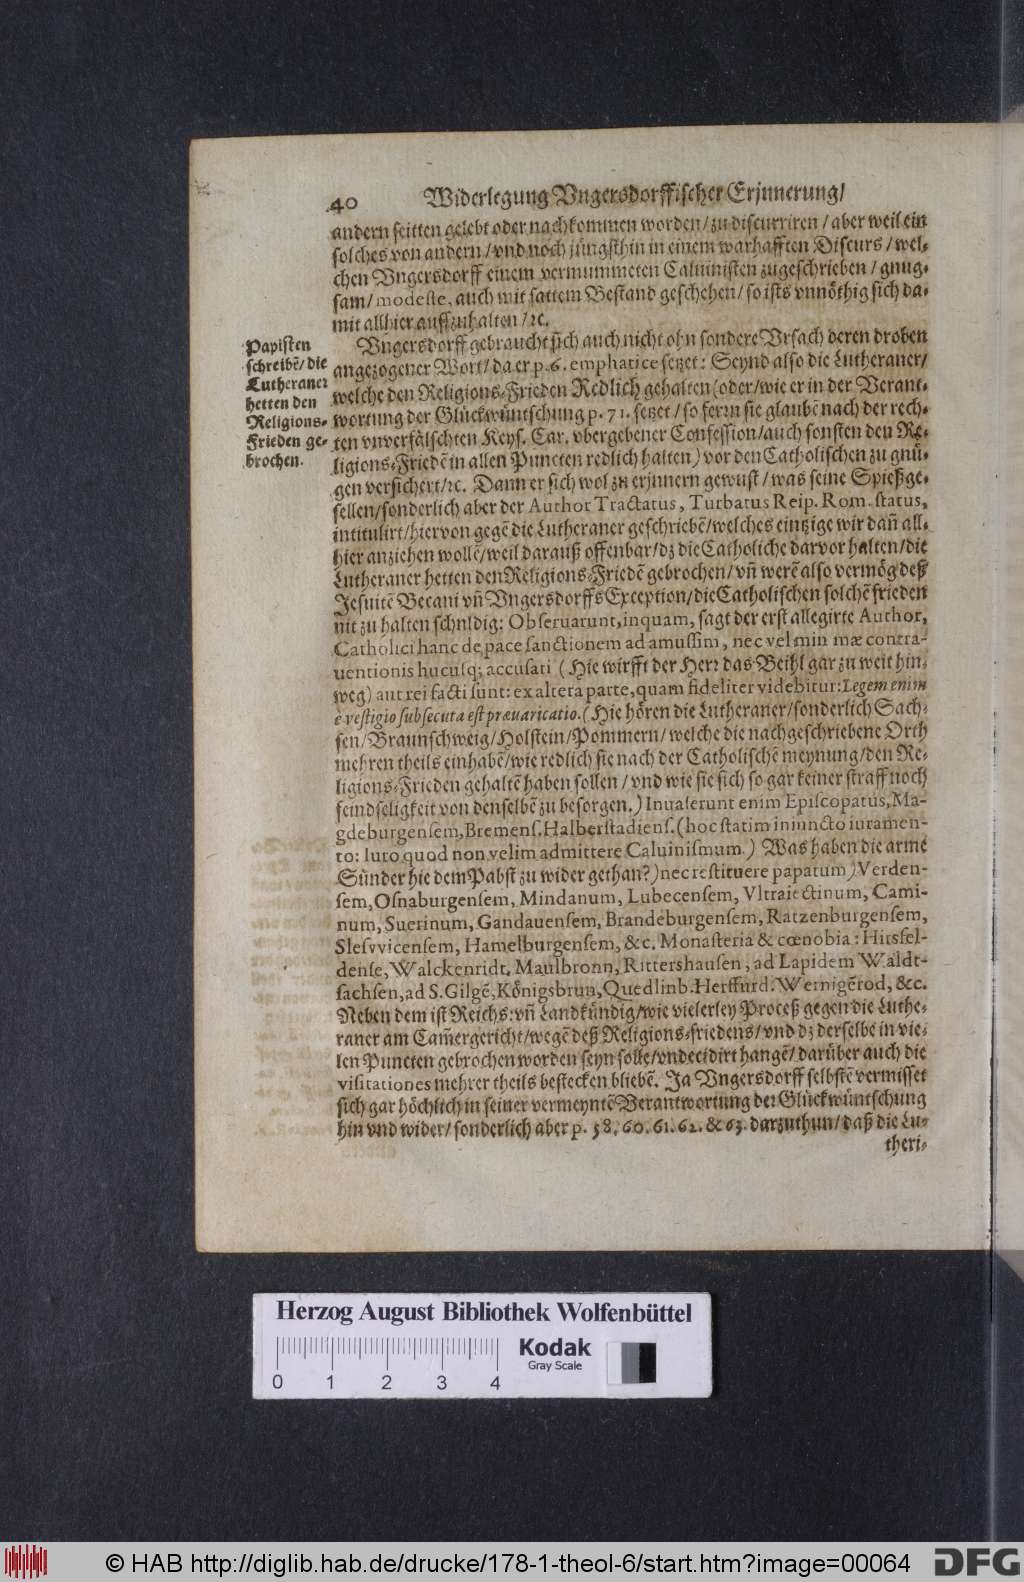 40 Widerlegung Vngersdorffischer Erjnnerung/
andern seitten gelebt oder nachkommen worden/ zu discurriren / aber weil ein
solches von andern/ vnd noch jüngsthin in einem warhafften Discurs / wel-
chen Vngersdorff einem vermummeten Caluinisten zugeschrieben / gnug-
sam/ modeste, auch mit sattem Bestand geschehen/ so ists vnnöthig sich da-
mit allhier auffzuhalten / ꝛc.
Papisten
schreibẽ/ die
Lutheraner
hetten den
Religions-
Frieden ge-
brochen.
Vngersdorff gebraucht sich auch nicht ohn sondere Vrsach deren droben
angezogener Wort/ da er p. 6. emphatice setzet: Seynd also die Lutheraner/
welche den Religions-Frieden Redlich gehalten (oder/ wie er in der Verant-
wortung der Glückwüntschung p. 71. setzet / so fern sie glaubẽ nach der rech-
ten vnverfälschten Keys. Car. vbergebener Confession/ auch sonsten den Re-
ligions-Friedẽ in allen Puncten redlich halten) vor den Catholischen zu gnü-
gen versichert/ ꝛc. Dann er sich wol zu erjnnern gewust / was seine Spießge-
sellen/ sonderlich aber der Author Tractatus, Turbatus Reip. Rom. status,
intitulirt/ hiervon gegẽ die Lutheraner geschriebẽ/ welches eintzige wir dañ all-
hier anziehen wollẽ/ weil darauß offenbar/ dz die Catholiche darvor halten/ die
Lutheraner hetten den Religions-Friedẽ gebrochen/ vñ werẽ also vermög deß
Jesuitẽ Becani vñ Vngersdorffs Exception/ die Catholischen solchẽ frieden
nit zu halten schuldig: Obseruarunt, inquam, sagt der erst allegirte Author,
Catholici hanc de pace sanctionem ad amussim, nec vel minimæ contra-
uentionis hucusq; accusati (Hie wirfft der Herr das Beihl gar zu weit hin-
weg) aut rei facti sunt: ex altera parte, quam fideliter videbitur: Legem enim
è vestigio subsecuta est præuaricatio. (Hie hören die Lutheraner/ sonderlich Sach-
sen/ Braunschweig/ Holstein/ Pommern/ welche die nachgeschriebene Orth
mehren theils einhabẽ/ wie redlich sie nach der Catholischẽ meynung/ den Re-
ligions-Frieden gehaltẽ haben sollen / vnd wie sie sich so gar keiner straff noch
feindseligkeit von denselbẽ zu besorgen.) Inuaserunt enim Episcopatus, Ma-
gdeburgensem, Bremens. Halberstadiens. (hoc statim iniuncto iuramen-
to: Iuro quod non velim admittere Caluinismum.) Was haben die arme
Sünder hie dem Pabst zu wider gethan?) nec restituere papatum) Verden-
sem, Osnaburgensem, Mindanum, Lubecensem, Vltraiectinum, Cami-
num, Suerinum, Gandauensem, Brandeburgensem, Ratzenburgensem,
Slesvvicensem, Hamelburgensem, &c. Monasteria & cœnobia: Hirsfel-
dense, Walckenridt, Maulbronn, Rittershausen, ad Lapidem Waldt-
sachsen, ad S. Gilgẽ, Königsbrun, Quedlinb. Herffurd. Wernigẽrod, &c.
Neben dem ist Reichs: vñ Landkündig/ wie vielerley Proceß gegen die Luthe-
raner am Cam̃ergericht/ wegẽ deß Religions-friedens/ vnd dz derselbe in vie-
len Puncten gebrochen worden seyn solle/ vndecidirt hangẽ/ darüber auch die
visitationes mehrer theils bestecken bliebẽ. Ja Vngersdorff selbstẽ vermisset
sich gar höchlich in seiner vermeyntẽ Verantwortung der Glückwüntschung
hin vnd wider/ sonderlich aber p. 58. 60. 61. 62. & 63. darzuthun/ daß die Lu-
theri-
Herzog August Bibliothek Wolfenbüttel
Kodak
Gray Scale
0 1 2 3 4
© HAB http://diglib.hab.de/drucke/178-1-theol-6/start.htm?image=00064
DFG